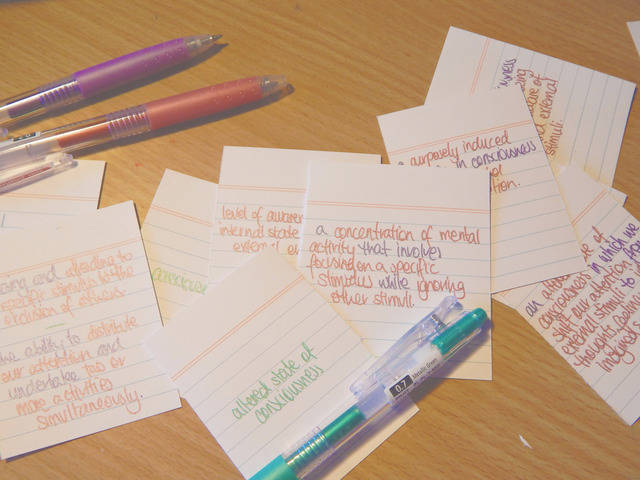 choosing and attending to
specific stimulus to the
exclusion of others.
the ability to distribute
our attention and
undertake two or
more activities
simultaneously.
level of aware
internal state
external e
a concentration of mental
activity that involves
focusing on a specific
stimulus while ignoring
other stimuli.
altered state of
consciousness
0.7
Metallic Green
purposely induced
in consciousness
external
stimuli.
an altered state of
consciousness in which we
shift our attention from
external stimuli to
thoughts, feelings